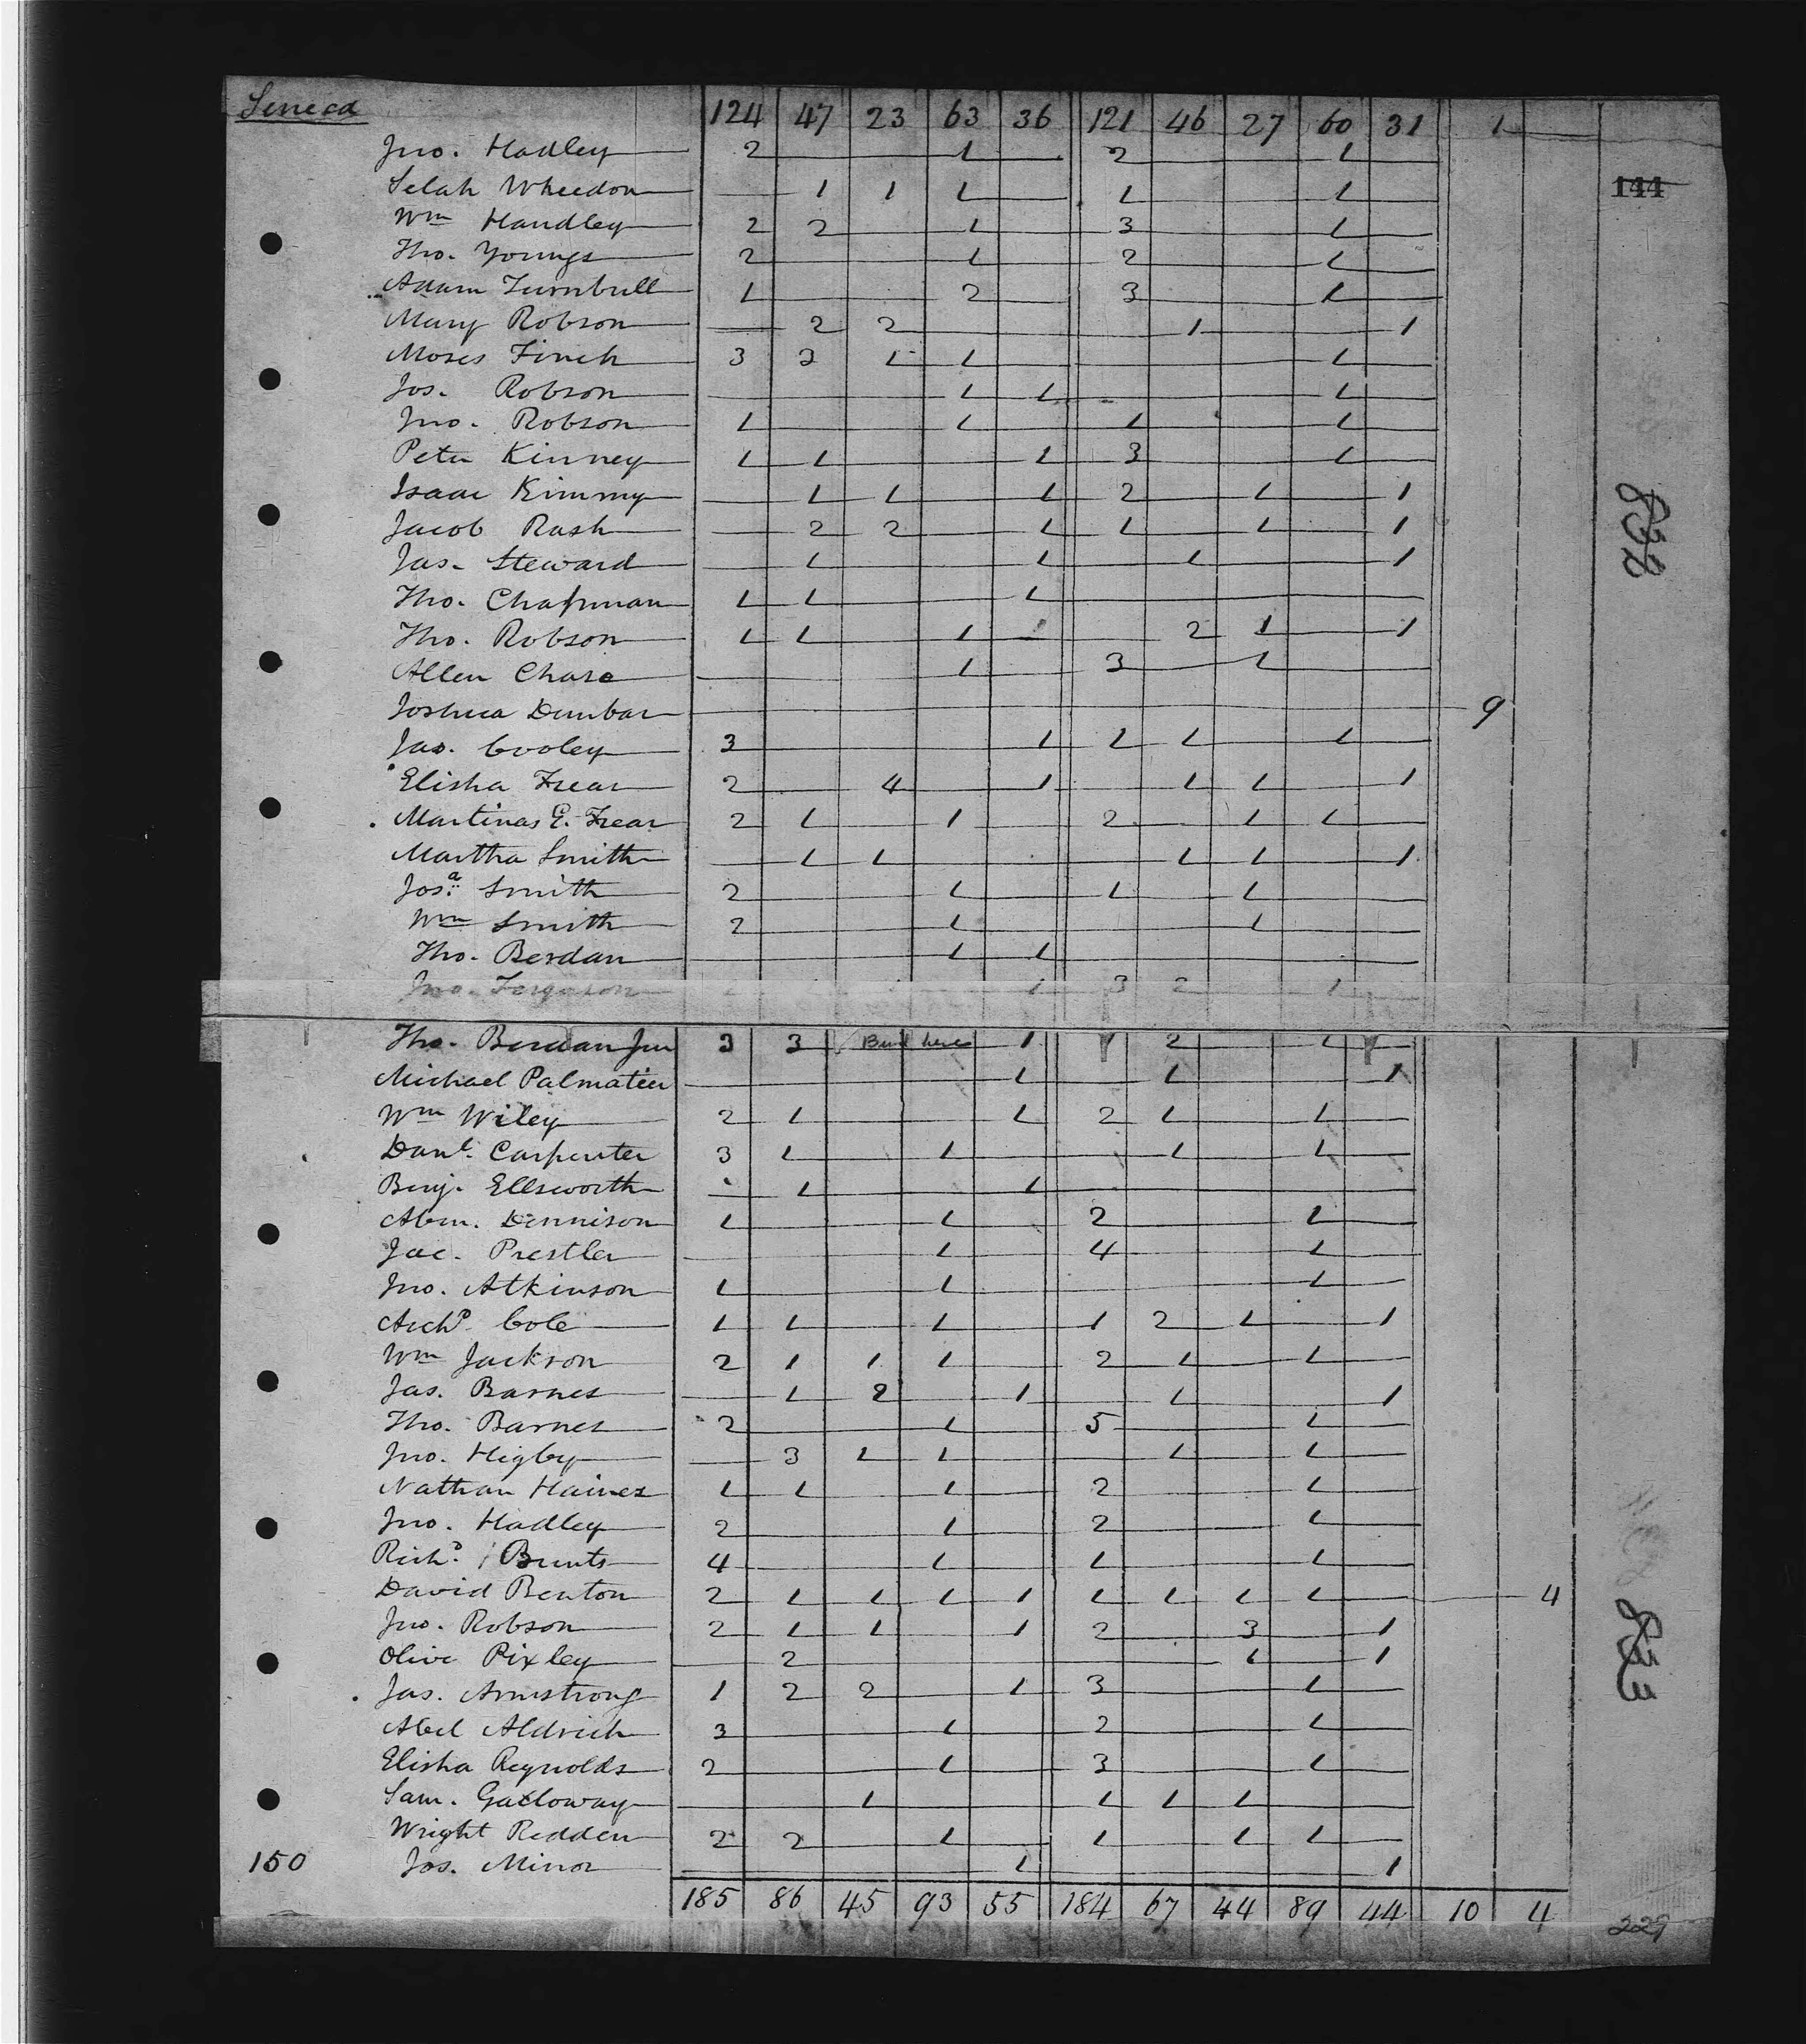 Seneca 124 47 23 63 36 121 46 27 60 31 1
Jno. Hadley 2 1 2 1
144
Selah Wheedon 1 1 1 1 1
Wm Handley 2 2 1 3 1
Tho. Youngs 2 1 2 1
Adam Turnbull 1 2 3 1
Mary Robson 2 2 1 1
Moses Finch 3 2 1 1 1
Jos. Robson 1 1 1
Jno. Robson 1 1 1 1
Peter Kinney 1 1 1 3 1
Isaac Kimmy 1 1 1 2 1 1
Jacob Rash 2 2 1 1 1 1
Jas. Steward 1 1 1 1
Tho. Chapman 1 1 1
Tho. Robson 1 1 1 2 1 1
Allen Chase 1 3 1
Joshua Dunbar 9
Jas. Cooley 3 1 1 1 1
Elisha Frear 2 4 1 1 1 1
Martinas E. Frear 2 1 1 2 1 1
Martha Smith 1 1 1 1 1
Josa. Smith 2 1 1 1
Wm Smith 2 1 1
Tho. Berdan 1 1
Jno. Ferguson 1 3 2 1
Tho. Berdan Jun 3 3 Bind here 1 1 2 1 1
Michael Palmatier 1 1 1
Wm Wiley 2 1 1 2 1 1
Danl. Carpenter 3 1 1 1 1
Benj. Ellsworth 1 1
Abm. Dennison 1 1 2 1
Jac. Prestler 1 4 1
Jno. Atkinson 1 1 1
Archd. Cole 1 1 1 1 2 1 1
Wm Jackson 2 1 1 1 2 1 1
Jas. Barnes 1 2 1 1 1
Tho. Barnes 2 1 5 1
Jno. Higby 3 1 1 1 1
Nathan Haines 1 1 1 2 1
Jno. Hadley 2 1 2 1
Richd. Bunts 4 1 1 1
David Benton 2 1 1 1 1 1 1 1 1 4
Jno. Robson 2 1 1 1 2 3 1
Olive Pixley 2 1 1
Jas. Armstrong 1 2 2 1 3 1
Abel Aldrich 3 1 2 1
Elisha Reynolds 2 1 3 1
Sam. Galloway 1 1 1 1
Wright Redden 2 2 1 1 1 1
150 Jos. Minor 1 1
185 86 45 93 55 184 67 44 89 44 10 4
229